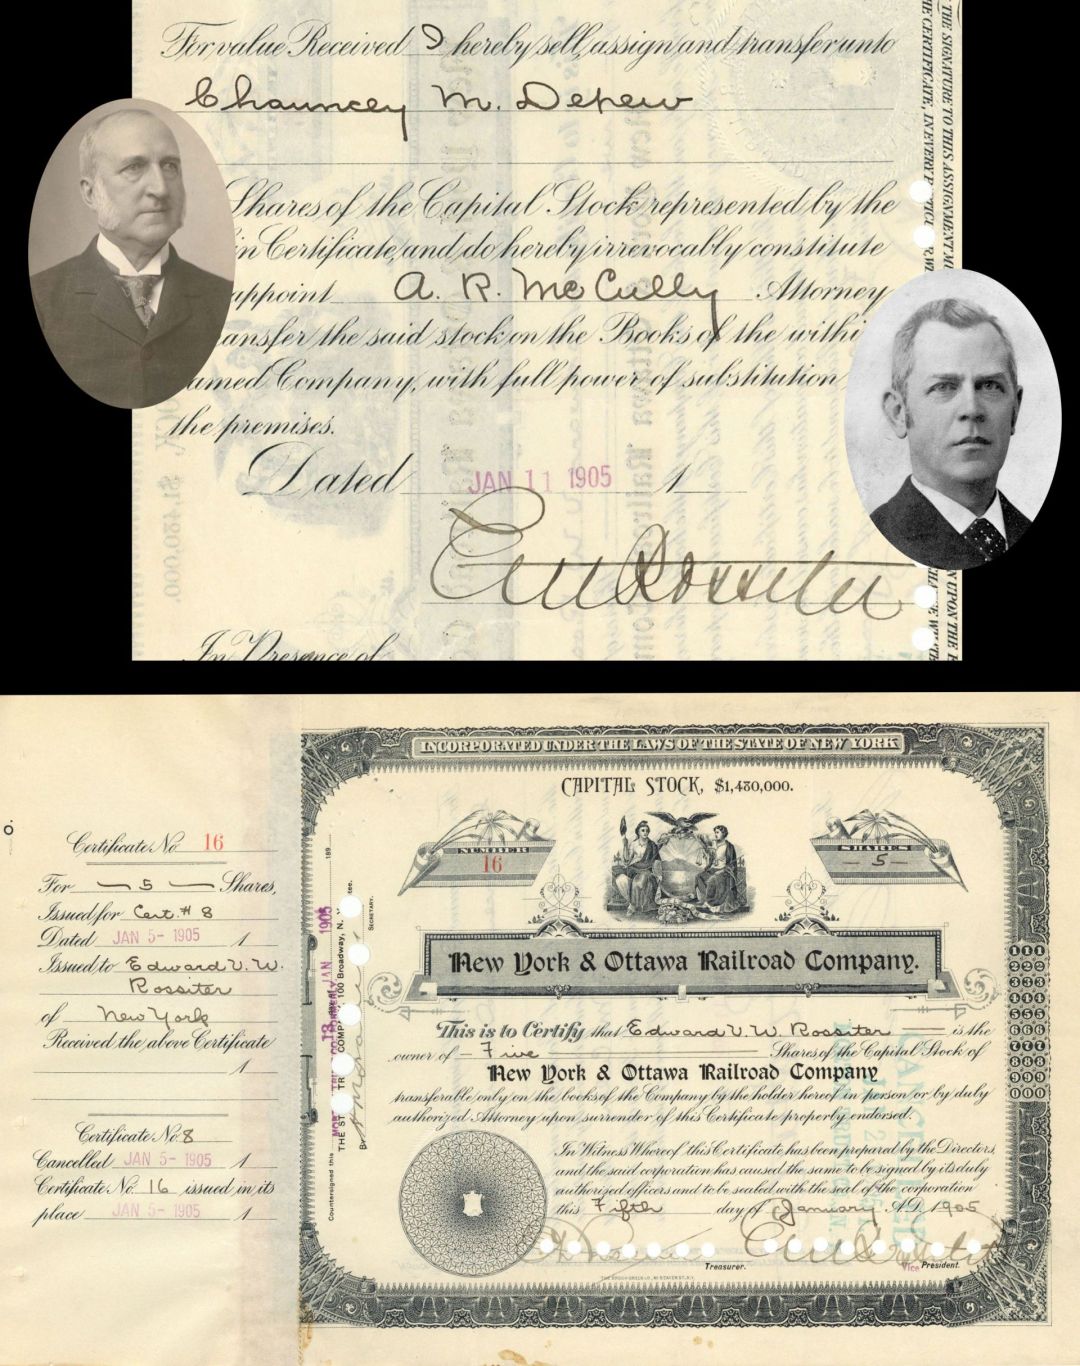 For value Received I hereby sell, assign and transfer unto
Chauncey M. Depew
Shares of the Capital Stock represented by the
in Certificate, and do hereby irrevocably constitute
appoint A. R. McCully Attorney
ansfer the said stock on the Books of the withi
amed Company, with full power of substitution
the premises.
Dated JAN 11 1905 1
E V W Rossiter
In Presence of
THE SIGNATURE TO THIS ASSIGNMENT MU
HE CERTIFICATE, IN EVERY P
N UPON THE F
$1,430,000.
INCORPORATED UNDER THE LAWS OF THE STATE OF NEW YORK
CAPITAL STOCK, $1,430,000.
NUMBER
16
SHARES
5
New York & Ottawa Railroad Company.
This is to Certify that Edward V. W. Rossiter is the
owner of Five Shares of the Capital Stock of
New York & Ottawa Railroad Company
transferable only on the books of the Company by the holder hereof in person or by duly
authorized Attorney upon surrender of this Certificate properly endorsed.
In Witness Whereof this Certificate has been prepared by the Directors,
and the said corporation has caused the same to be signed by its duly
authorized officers and to be sealed with the seal of the corporation
this Fifth day of January A.D. 1905
E V W Rossiter
Treasurer.
Vice President.
Certificate No 16
For 5 Shares,
Issued for Cert. # 8
Dated JAN 5- 1905 1
Issued to Edward V. W.
Rossiter
of New York
Received the above Certificate
1
Certificate No. 8
Cancelled JAN 5- 1905 1
Certificate No. 16 issued in its
place JAN 5- 1905 1
Countersigned this
189
JAN 1905
100 Broadway, N. Y
By
SECRETARY.
111
222
333
444
555
666
777
888
999
000